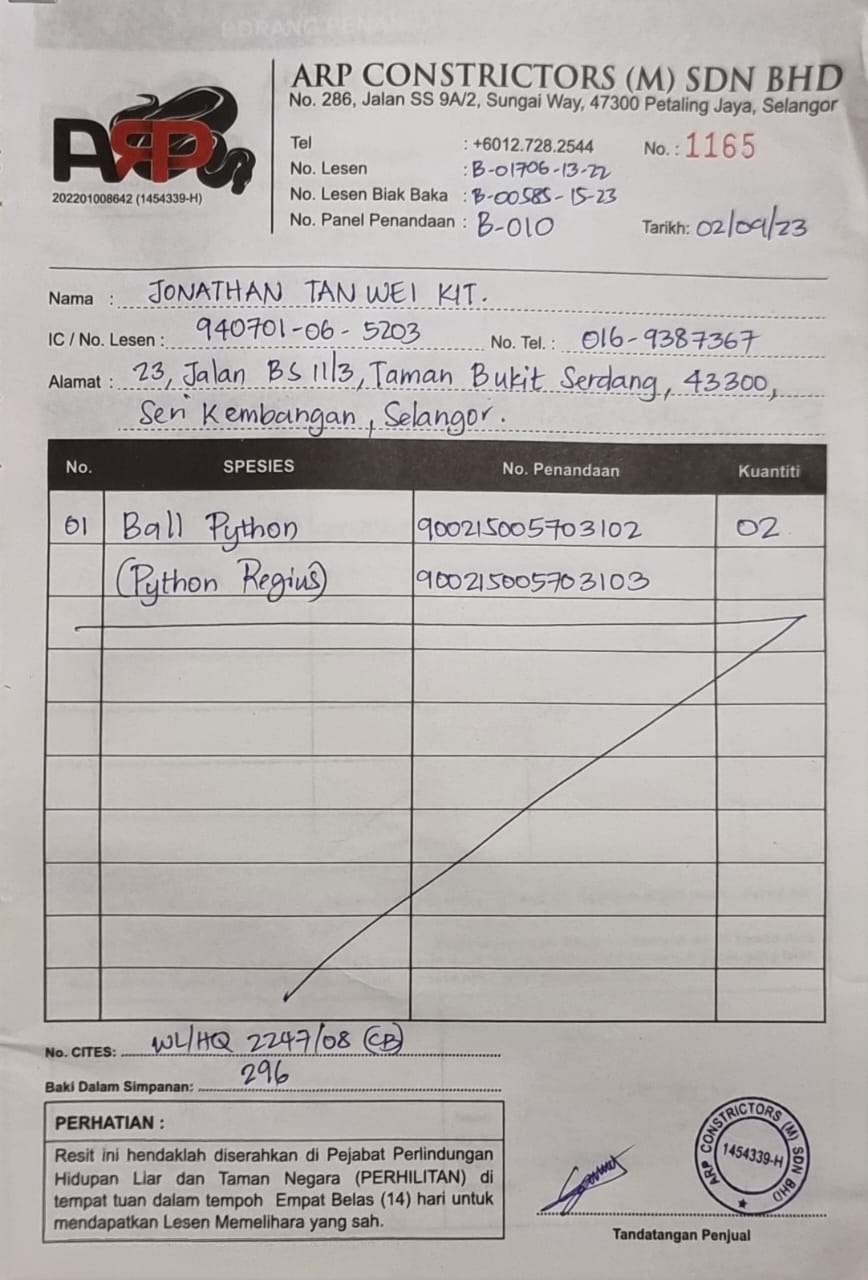 ARP CONSTRICTORS (M) SDN BHD
No. 286, Jalan SS 9A/2, Sungai Way, 47300 Petaling Jaya, Selangor
ARP
202201008642 (1454339-H)
Tel : +6012.728.2544
No. : 1165
No. Lesen : B-01706-13-22
No. Lesen Biak Baka : B-00585-15-23
No. Panel Penandaan : B-010
Tarikh: 02/09/23
Nama : JONATHAN TAN WEI KIT.
IC / No. Lesen : 940701-06-5203 No. Tel. : 016-9387367
Alamat : 23, Jalan BS 11/3, Taman Bukit Serdang, 43300,
Seri Kembangan, Selangor.
No. SPESIES No. Penandaan Kuantiti
01 Ball Python 900215005703102 02
(Python Regius) 900215005703103
No. CITES: WL/HQ 2247/08 (CB)
Baki Dalam Simpanan: 296
PERHATIAN :
Resit ini hendaklah diserahkan di Pejabat Perlindungan
Hidupan Liar dan Taman Negara (PERHILITAN) di
tempat tuan dalam tempoh Empat Belas (14) hari untuk
mendapatkan Lesen Memelihara yang sah.
ARP CONSTRICTORS (M) SDN BHD
1454339-H
Tandatangan Penjual